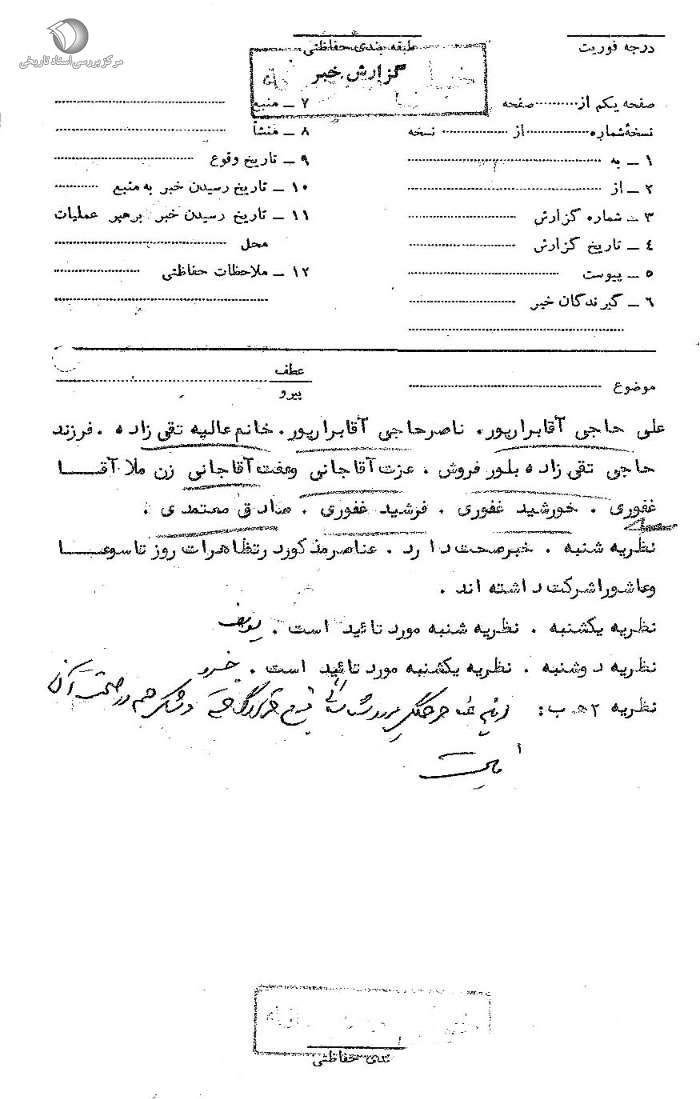 مرکز بررسی اسناد تاریخی
درجه فوریت
طبقه بندی حفاظتی
گزارش خبر
صفحه یکم از .......... صفحه
نسخهٔ شماره .......... از .......... نسخه
۱ ـ به
۲ ـ از
۳ ـ شماره گزارش
۴ ـ تاریخ گزارش
۵ ـ پیوست
۶ ـ گیرندگان خبر
۷ ـ منبع
۸ ـ منشأ
۹ ـ تاریخ وقوع
۱۰ ـ تاریخ رسیدن خبر به منبع
۱۱ ـ تاریخ رسیدن خبر برهبر عملیات
محل
۱۲ ـ ملاحظات حفاظتی
موضوع
عطف
پیرو
علی حاجی آقابرارپور. ناصرحاجی آقابرارپور. خانم عالیه تقی زاده . فرزند
حاجی تقی زاده بلور فروش . عزت آقاجانی وعفت آقاجانی زن ملا آقا
غفوری . خورشید غفوری . فرشید غفوری . صادق معتمدی .
نظریه شنبه . خبرصحت دارد . عناصرمذکورد رتظاهرات روز تاسوعا
وعاشوراشرکت داشته اند .
نظریه یکشنبه . نظریه شنبه مورد تائید است .
نظریه دوشنبه . نظریه یکشنبه مورد تائید است . خسرو
نظریه ۲ هـ ب :
حفاظتی